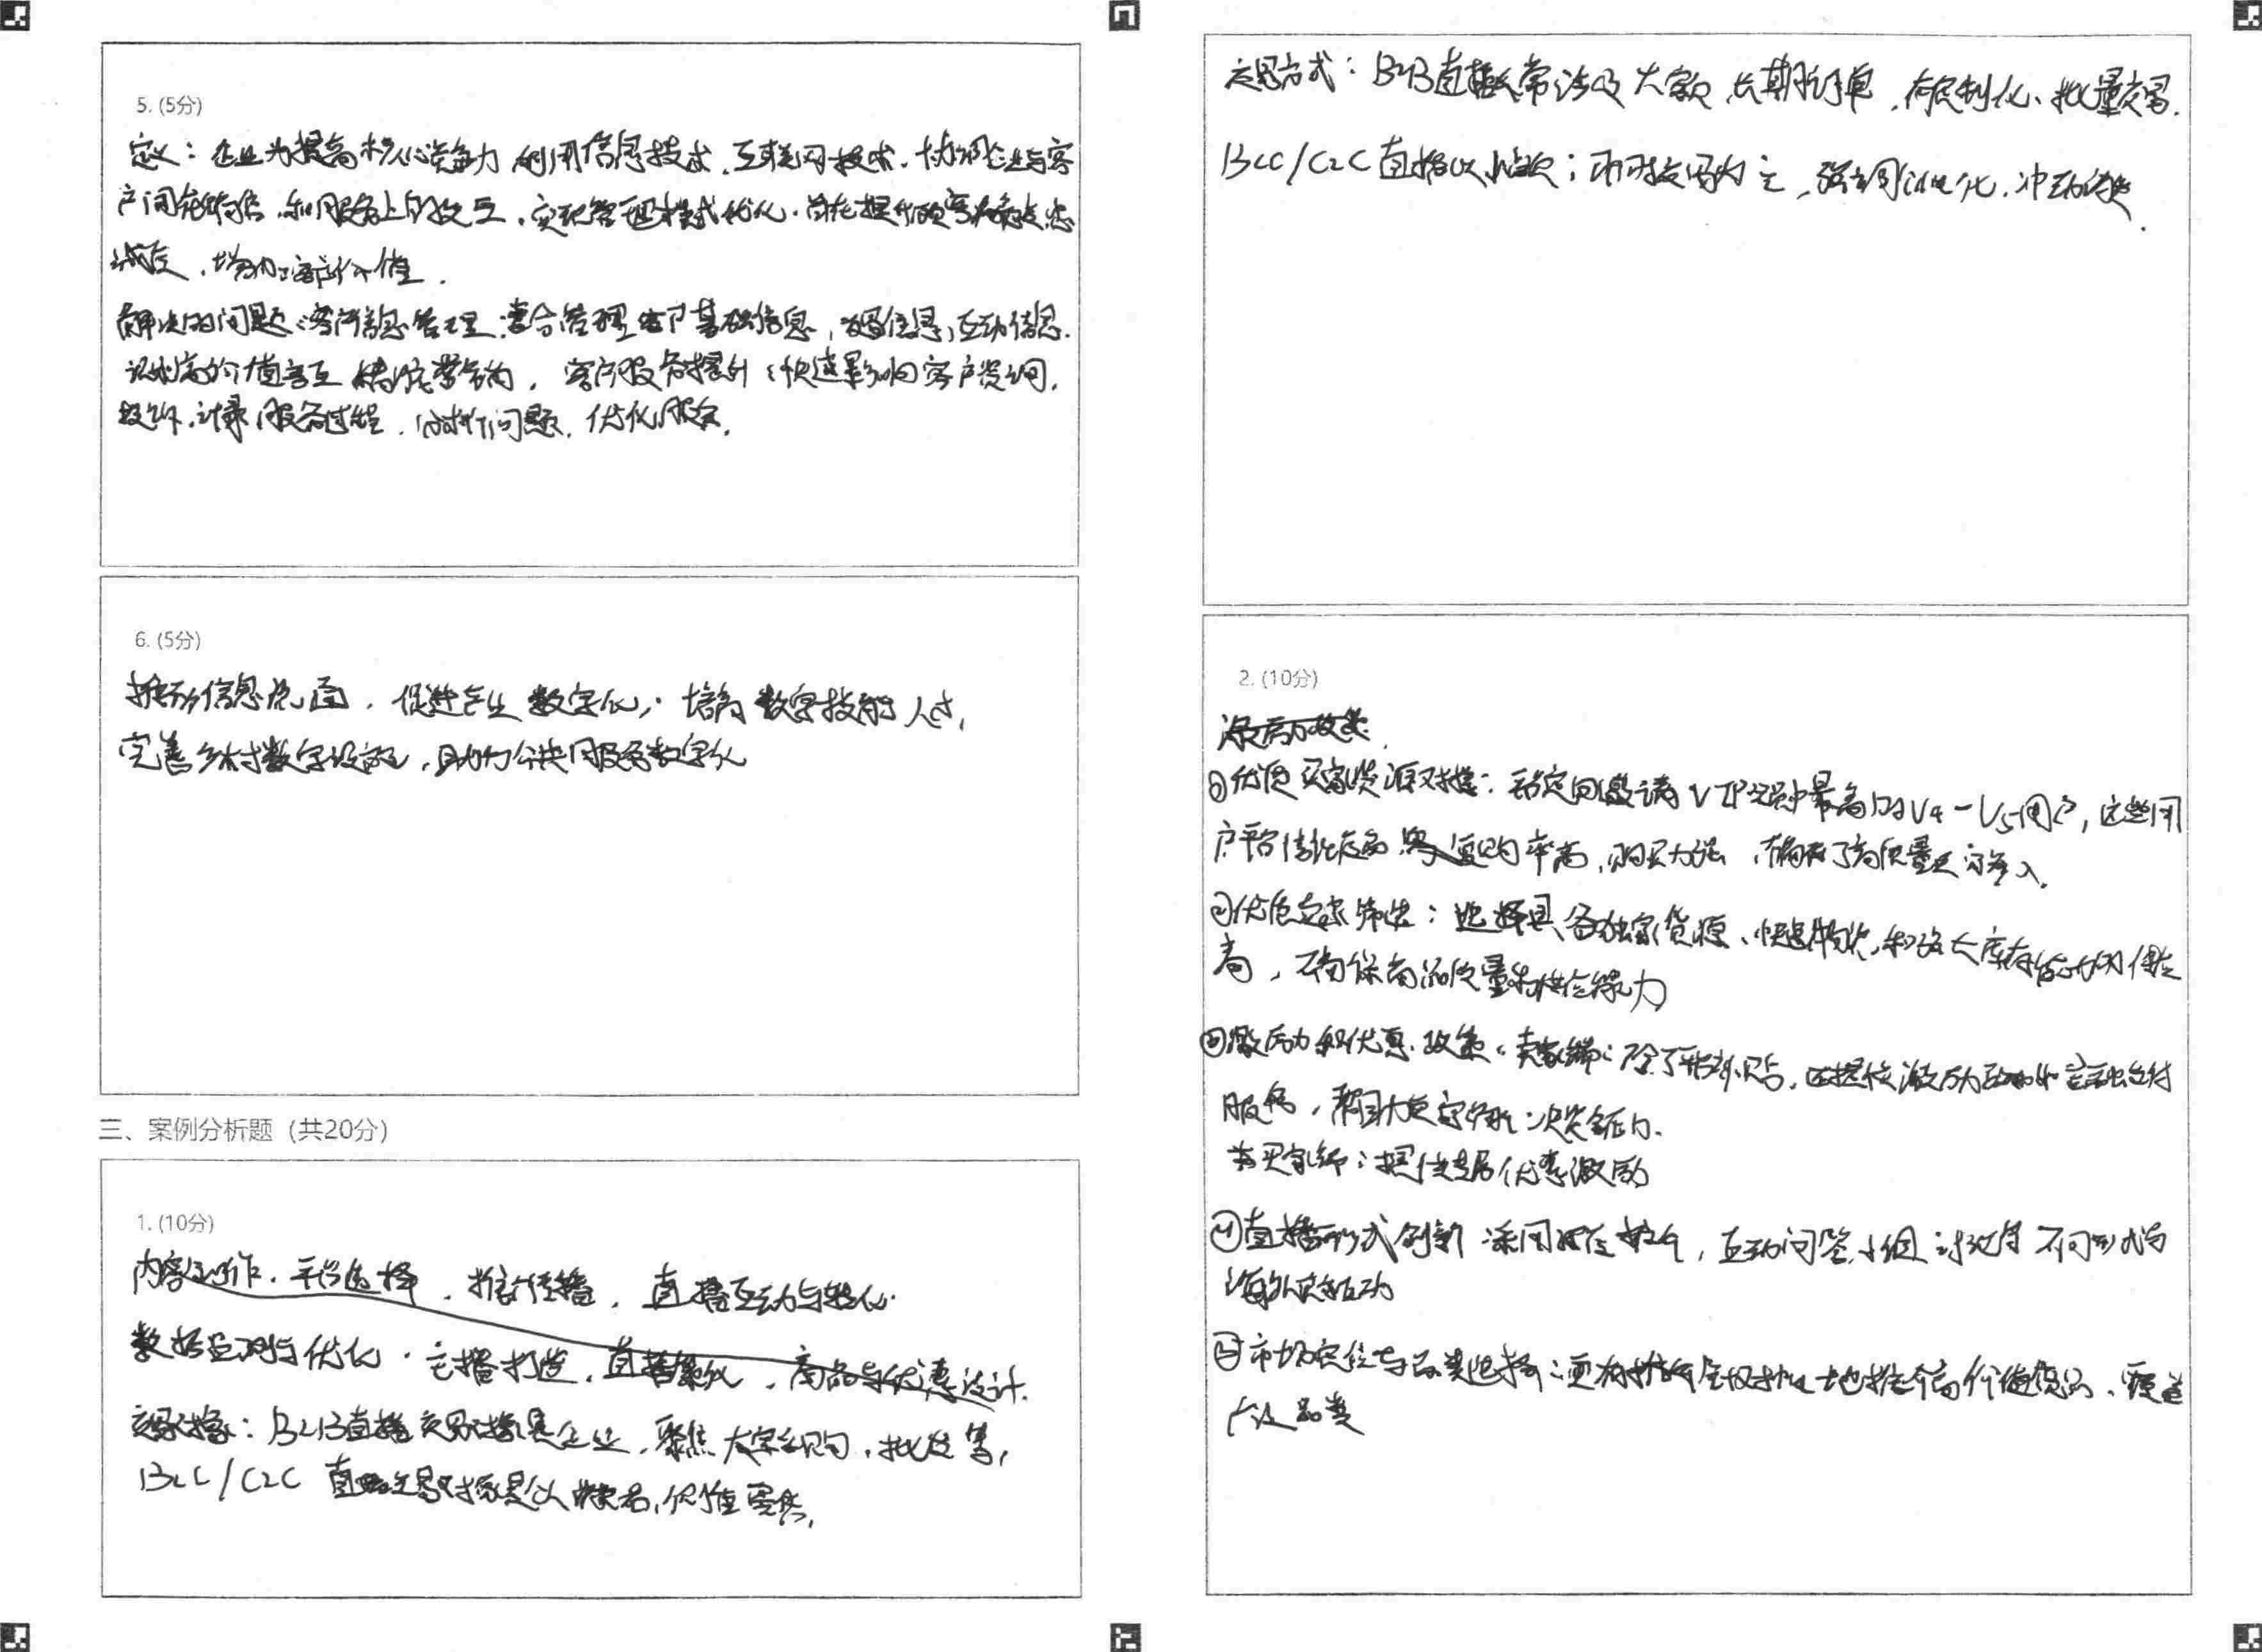 5. (5分)
定义：企业为提高核心竞争力利用信息技术、互联网技术，协调企业与客
户间在销售、和服务上的交互，实现管理模式优化，
增加客户价值．
解决的问题：客户信息管理：整合管理客户基础信息，交易信息，互动信息．
识别高价值客户 精准营销，客户服务提升：快速影响客户咨询，
投诉，记录服务过程，分析问题，优化服务．
6. (5分)
信息，促进产业数字化，培育数字技能人才，
完善乡村数字设施，助力公共服务数字化
三、案例分析题（共20分）
1. (10分)
内容创作．平台选择，推广传播，直播互动与转化．
数据监测与优化．主播打造，直播，商品与优惠设计．
交易对象：B2B直播交易对象是企业，聚焦大宗采购，批发等，
B2C/C2C 直播交易对象是个人，需求，
交易方式：B2B直播常涉及大额、长期订单，有定制化、批量交易．
B2C/C2C直播以小额；即时交易为主，强调个性化，冲动消费．
2. (10分)
①优质买家资源对接：定向邀请VIP中最高的V4-V5用户，这些用
户平台复购率高，购买力强，确保了高质量买家导入．
②优质卖家筛选：选择具备独家货源、快速物流，和强大库存能力的供应
商，确保商品质量和供应能力
③激励和优惠政策：卖家端：除了补贴，还提供激励支付
服务，帮助卖家解决资金压力．
买家端：提供专属优惠激励
④直播形式创新 采用，互动问答，小组讨论等不同形式与
海外买家互动
⑤市场定位与品类选择：更有地推介高价值货品，覆盖
品类